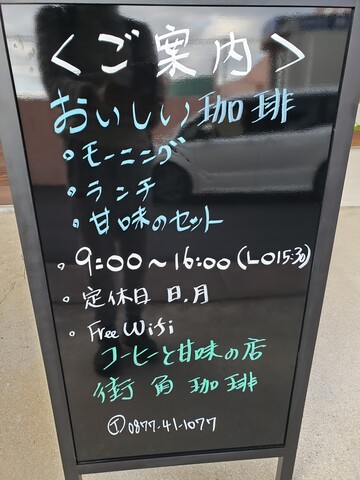 ＜ご案内＞
おいしい珈琲
・モーニング
・ランチ
・甘味のセット
・9:00～16:00(LO15:30)
・定休日 日.月
・Free Wifi
コーヒーと甘味の店
街角珈琲
Ⓣ0877-41-1077